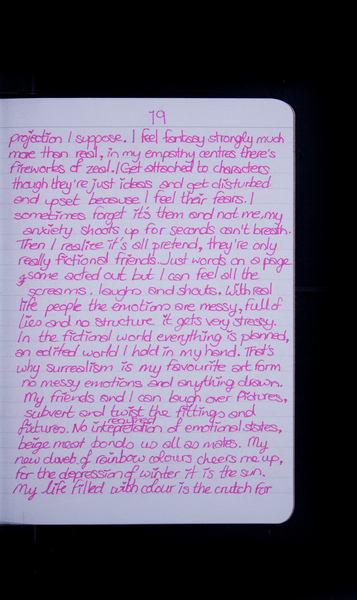 19
projection I suppose. I feel fantasy strongly much
more than real, in my empathy centres there's
fireworks of zeal. I Get attached to characters
though they're just ideas and get disturbed
and upset because I feel their fears. I
sometimes forget it's them and not me, my
anxiety shoots up for seconds can't breath.
Then I realize it's all pretend, they're only
really fictional friends. Just words on a page
& some acted out but I can feel all the
screams, laughs and shouts. With real
life people the emotions are messy, full of
lies and no structure it gets very stressy.
In the fictional world everything is planned,
an edited world I hold in my hand. That's
why surrealism is my favourite art form
no messy emotions and anything drawn.
My friends and I can laugh over pictures,
subvert and twist the fittings and
fixtures. No required intepretation of emotional states,
beige meat bonds us all as mates. My
new of rainbow colours cheers me up,
for the depression of winter it is the sun.
My life filled with colour is the crutch for